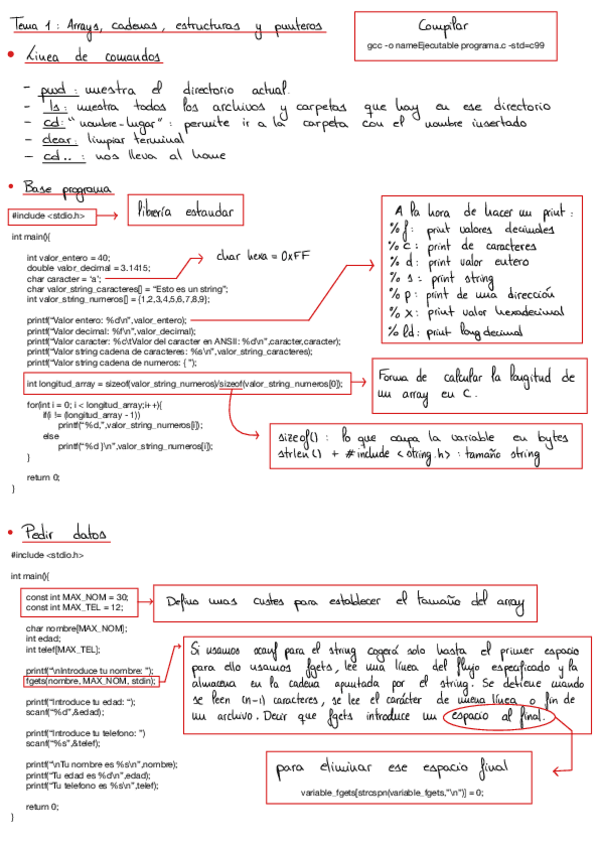 Tema 1: Arrays, cadenas, estructuras y punteros
Compilar
gcc -o nameEjecutable programa.c -std=c99
• Linea de comandos
- pwd: muestra el directorio actual.
- ls: muestra todos los archivos y carpetas que hay en ese directorio
- cd: "nombre-lugar": permite ir a la carpeta con el nombre insertado
- clear: limpiar terminal
- cd..: nos lleva al home
• Base programa
#include <stdio.h>
librería estandar
int main(){
int valor_entero = 40;
double valor_decimal = 3.1415;
char caracter = 'a';
char hexa = 0xFF
char valor_string_caracteres[] = "Esto es un string";
int valor_string_numeros[] = {1,2,3,4,5,6,7,8,9};
printf("Valor entero: %d\n",valor_entero);
printf("Valor decimal: %f\n",valor_decimal);
printf("Valor caracter: %c\tValor del caracter en ANSII: %d\n",caracter,caracter);
printf("Valor string cadena de caracteres: %s\n",valor_string_caracteres);
printf("Valor string cadena de numeros: { ");
int longitud_array = sizeof(valor_string_numeros)/sizeof(valor_string_numeros[0]);
for(int i = 0; i < longitud_array;i++){
if(i != (longitud_array - 1))
printf("%d,",valor_string_numeros[i]);
else
printf("%d }\n",valor_string_numeros[i]);
}
return 0;
}
A la hora de hacer un print:
%f: print valores decimales
%c: print de caracteres
%d: print valor entero
%s: print string
%p: print de una dirección
%x: print valor hexadecimal
%ld: print long decimal
Forma de calcular la longitud de
un array en C.
sizeof(): lo que ocupa la variable en bytes
strlen() + #include <string.h>: tamaño string
• Pedir datos
#include <stdio.h>
int main(){
const int MAX_NOM = 30;
const int MAX_TEL = 12;
Defino unas custes para establecer el tamaño del array
char nombre[MAX_NOM];
int edad;
int telef[MAX_TEL];
printf("\nIntroduce tu nombre: ");
fgets(nombre, MAX_NOM, stdin);
printf("Introduce tu edad: ");
scanf("%d",&edad);
printf("Introduce tu telefono: ")
scanf("%s",&telef);
printf("\nTu nombre es %s\n",nombre);
printf("Tu edad es %d\n",edad);
printf("Tu telefono es %s\n",telef);
return 0;
}
Si usamos scanf para el string cogerá solo hasta el primer espacio
para ello usamos fgets, lee una línea del flujo especificado y la
almacena en la cadena apuntada por el string. Se detiene cuando
se leen (n-1) caracteres, se lee el carácter de nueva línea o fin de
un archivo. Decir que fgets introduce un espacio al final.
para eliminar ese espacio final
variable_fgets[strcspn(variable_fgets,"\n")] = 0;